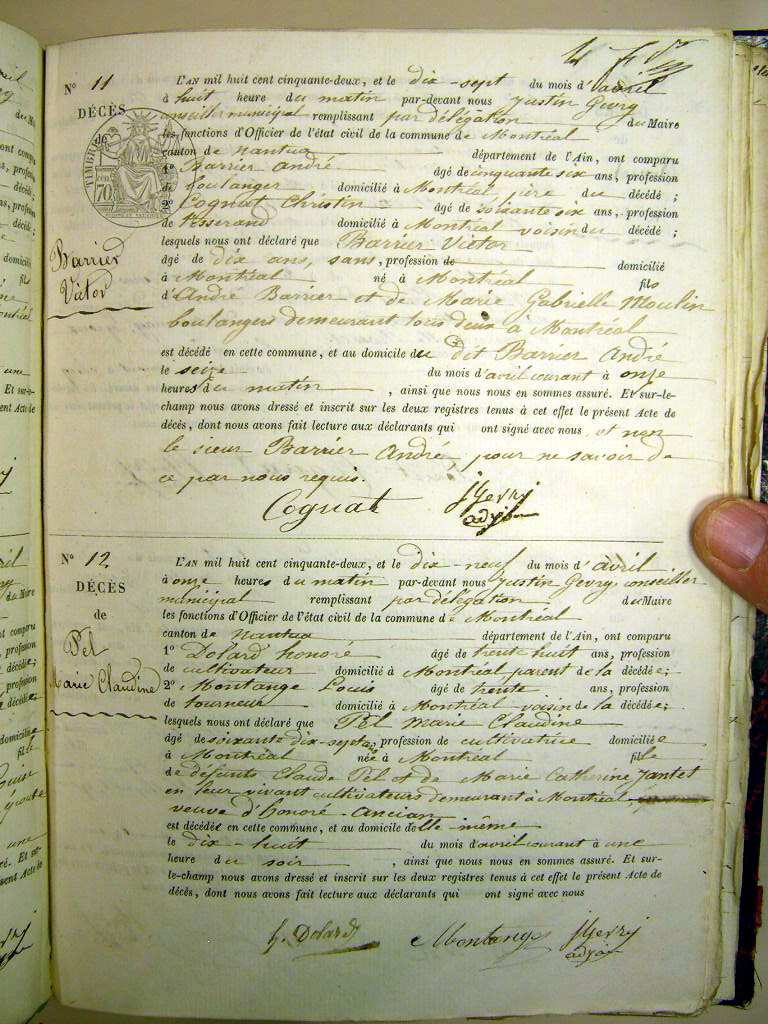 N° 11
DÉCÈS
de
TIMBRE
70
Barrier
Victor
L'AN mil huit cent cinquante-deux, et le dix-sept du mois d'avril
à huit heure du matin par-devant nous Justin Gevry
conseiller municipal remplissant par délégation du Maire
les fonctions d'Officier de l'état civil de la commune de Montréal
canton de nantua département de l'Ain, ont comparu
1° Barrier André âgé de cinquante six ans, profession
de boulanger domicilié à Montréal père du décédé ;
2° Cognat Christin âgé de soixante six ans, profession
de Tisserand domicilié à Montréal voisin du décédé ;
lesquels nous ont déclaré que Barrier Victor
âgé de dix ans, sans, profession de domicilié
à Montréal né à Montréal fils
d'André Barrier et de Marie Gabrielle Moulin
boulangers demeurant tous deux à Montréal
est décédé en cette commune, et au domicile du dit Barrier André
le seize du mois d'avril courant à onze
heures du matin , ainsi que nous nous en sommes assuré. Et sur-le-
champ nous avons dressé et inscrit sur les deux registres tenus à cet effet le présent Acte de
décès, dont nous avons fait lecture aux déclarants qui ont signé avec nous, et non
le sieur Barrier André, pour ne savoir de
ce par nous requis.
Cognat JGevry
adjoin
N° 12.
DÉCÈS
de
Pel
Marie Claudine
L'AN mil huit cent cinquante-deux, et le dix-neuf du mois d'avril
à onze heures du matin par-devant nous Justin Gevry, conseiller
municipal remplissant par délégation du Maire
les fonctions d'Officier de l'état civil de la commune de Montréal
canton de nantua département de l'Ain, ont comparu
1° Dolard honoré âgé de trente huit ans, profession
de cultivateur domicilié à Montréal parent de la décédée;
2° Montange Louis âgé de trente ans, profession
de tourneur domicilié à Montréal voisin de la décédée;
lesquels nous ont déclaré que Pel marie Claudine
âgé de soixante dix-sept ans, profession de cultivatrice domiciliée
à Montréal née à Montréal fille
de défunts Claude Pel et de Marie Catherine Jantet
en leur vivant cultivateurs demeurant à Montréal
veuve d'honoré Ancian
est décédée en cette commune, et au domicile d'elle-même
le dix-huit du mois d'avril courant à une
heure du soir , ainsi que nous nous en sommes assuré. Et sur-
le-champ nous avons dressé et inscrit sur les deux registres tenus à cet effet le présent Acte de
décès, dont nous avons fait lecture aux déclarants qui ont signé avec nous
h. Dolard Montange JGevry
adjoin